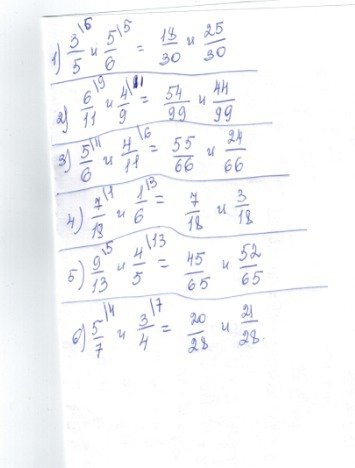 1) 3/5 \6 и 5/6 \5 = 18/30 и 25/30
2) 6/11 \9 и 4/9 \11 = 54/99 и 44/99
3) 5/6 \11 и 4/11 \6 = 55/66 и 24/66
4) 7/18 \1 и 1/6 \3 = 7/18 и 3/18
5) 9/13 \5 и 4/5 \13 = 45/65 и 52/65
6) 5/7 \4 и 3/4 \7 = 20/28 и 21/28.